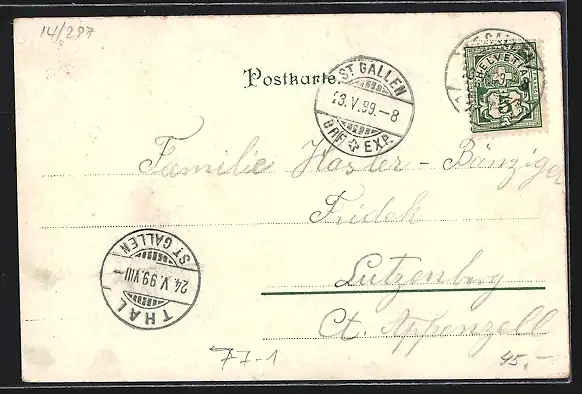 14/297
Postkarte.
ST. GALLEN
23.V.99.-8
BRF. EXP.
HELVETIA
5
Familie Hasler-Bänziger
Fridek
Lutzenberg
Ct. Appenzell
THAL
24.V.99.VIII-
ST GALLEN
77-1
45.-